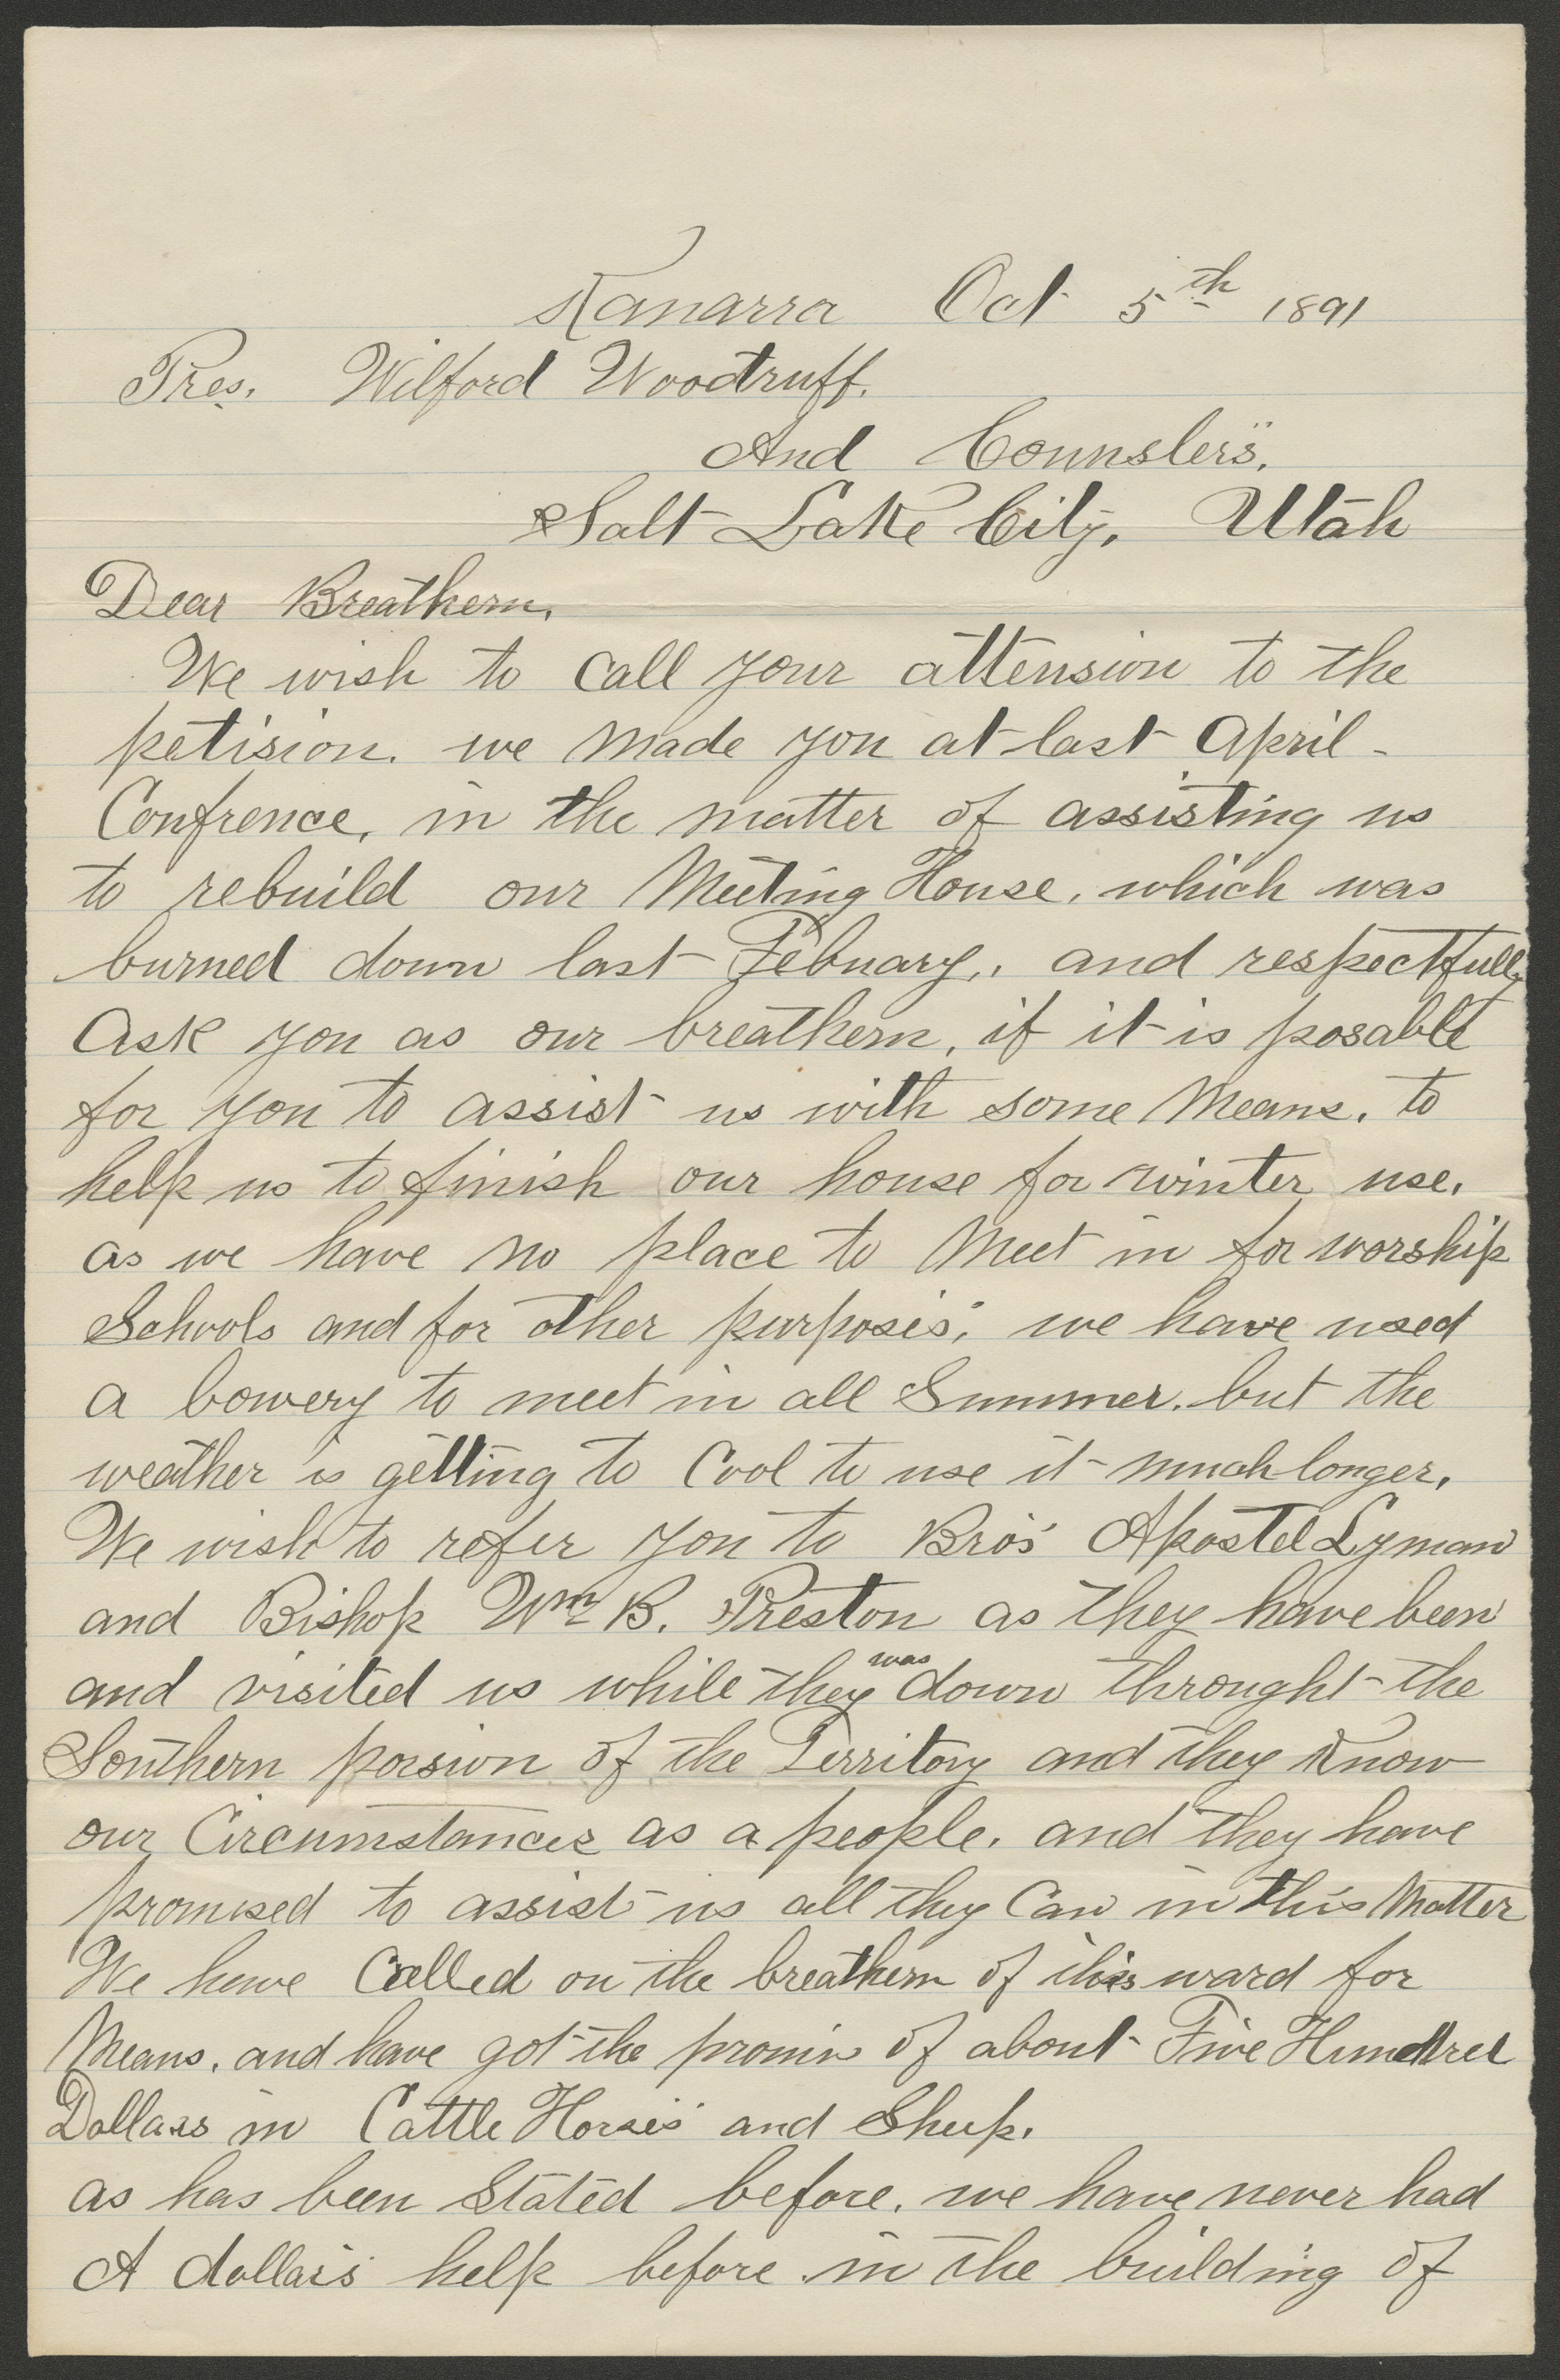 Kanarra Oct 5th 1891
Pres. Wilford Woodruff.
And Counslers.
Salt Lake City, Utah
Dear Breathern,
We wish to Call your attension to the
petision. we Made you at last April
Confrence, in the matter of assisting us
to rebuild our Meeting House, which was
burned down last Febuary,. and respectfully
Ask you as our breathern, if it is posable
for you to assist us with some Means. to
help us to finish our house for winter use,
as we have no place to Meet in for worship
Schools and for other purposes, we have used
a bowery to meet in all Summer. but the
weather is getting to Cool to use it much longer,
We wish to refer you to Bros Apostel Lyman
and Bishop Wm B. Preston as they have been
and visited us while they was down throught the
Southern porsion of the Territory and they Know
our Circumstances as a people. and they have
promised to assist us all they Can in this Matter
We have Called on the breathern of this ward for
Means. and have got the promis of about Five Hundred
Dollars in Cattle Horses and Sheep.
as has been Stated before. we have never had
A dollars help before in the building of